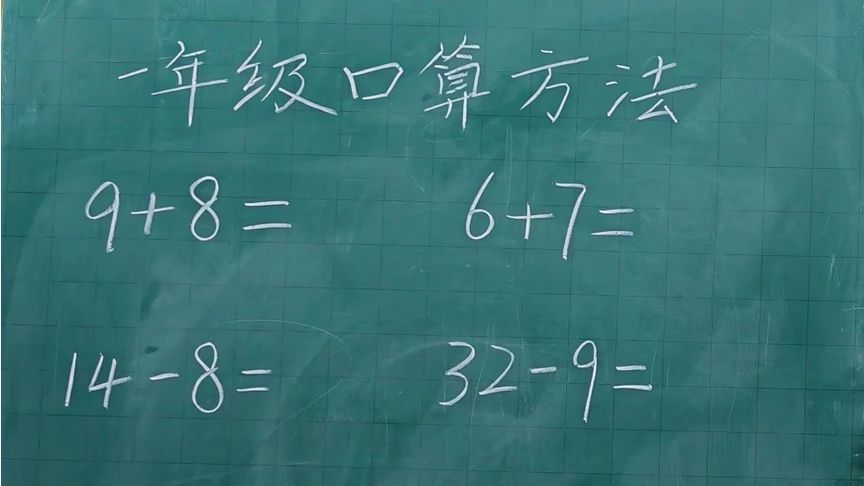 一年级口算方法
9+8= 6+7=
14-8= 32-9=